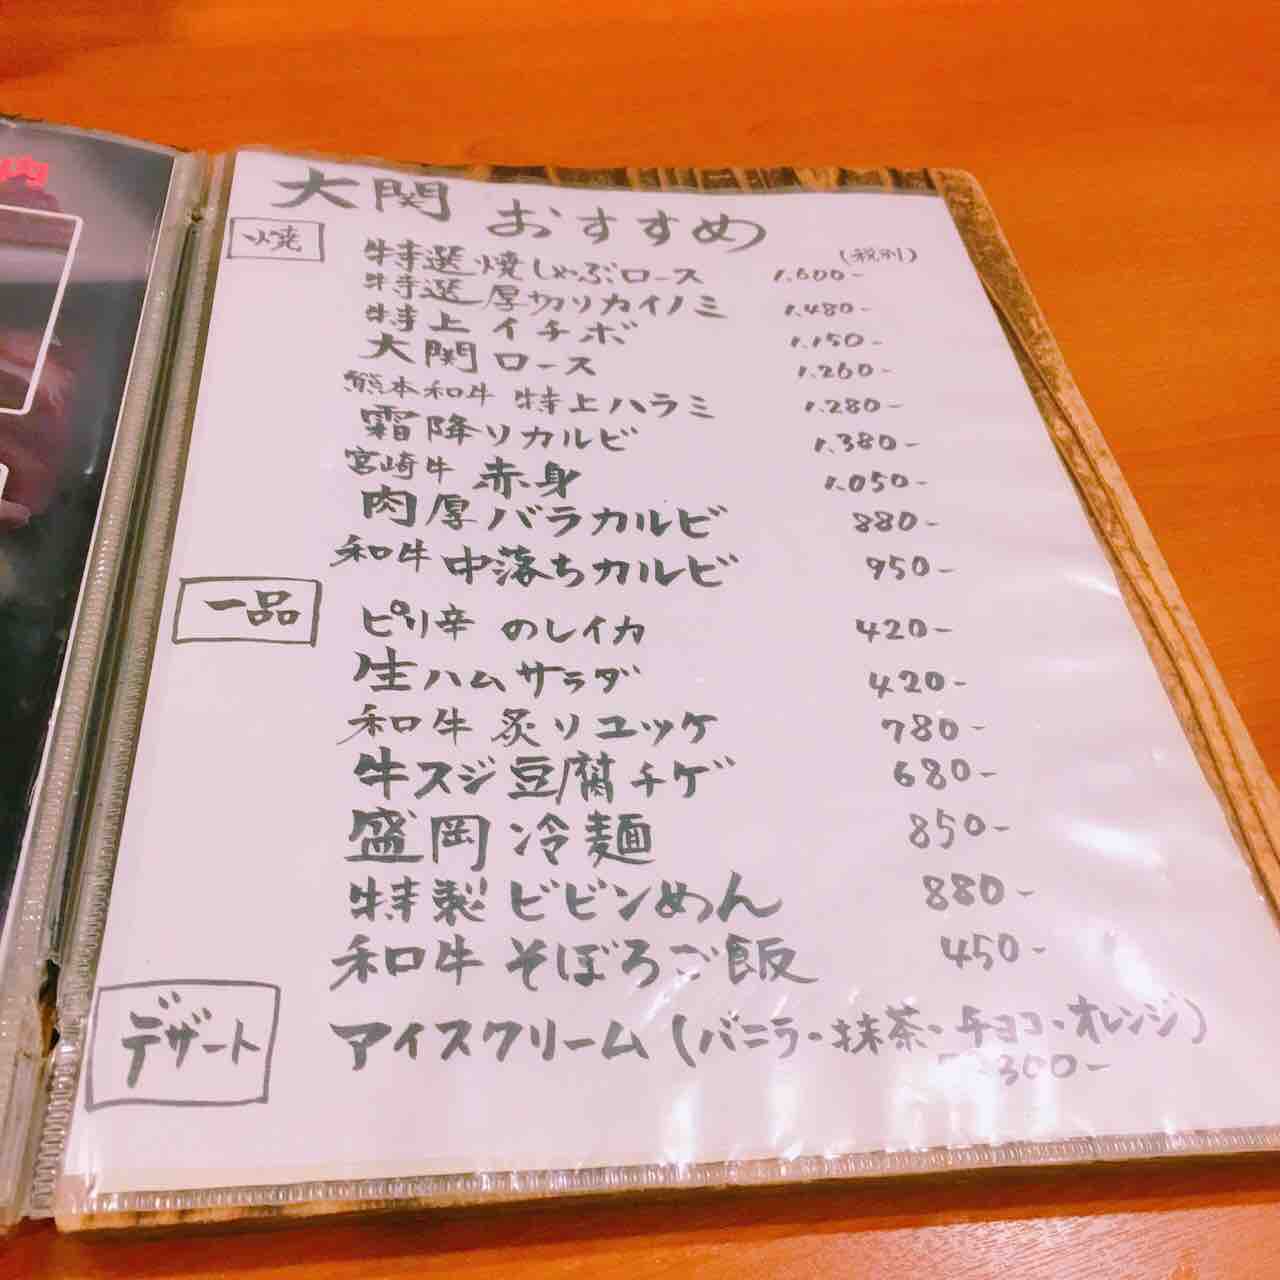 肉
大関 おすすめ
焼
(税別)
特選 焼しゃぶロース 1.600-
特選 厚切りカイノミ 1.480-
特上 イチボ 1.150-
大関 ロース 1.260-
熊本和牛 特上ハラミ 1.280-
霜降りカルビ 1.380-
宮崎牛 赤身 1.050-
肉厚バラカルビ 880-
和牛 中落ちカルビ 950-
一品
ピリ辛 のしイカ 420-
生ハムサラダ 420-
和牛 炙りユッケ 780-
牛スジ豆腐チゲ 680-
盛岡 冷麺 850-
特製 ビビンめん 880-
和牛 そぼろご飯 450-
デザート
アイスクリーム (バニラ・抹茶・チョコ・オレンジ)
300-